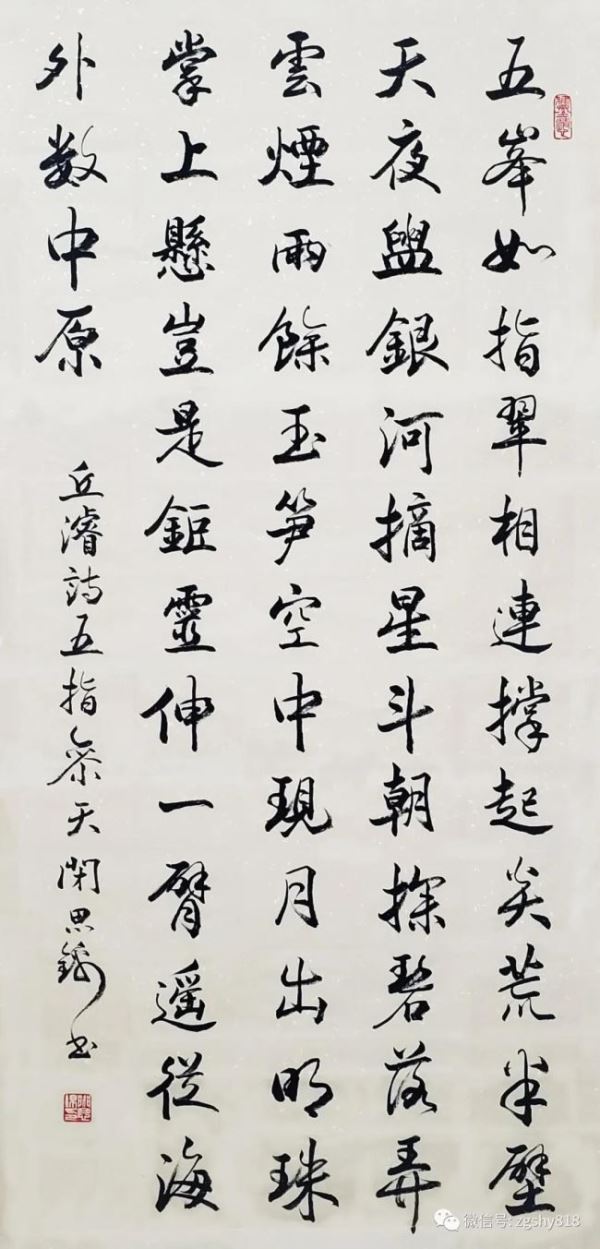 五峯如指翠相連撐起炎荒半壁
天夜盥銀河摘星斗朝探碧落弄
雲煙雨餘玉笋空中現月出明珠
掌上懸豈是鉅靈伸一臂遥從海
外数中原
丘濬詩五指參天 思 书
微信号: zgshy818